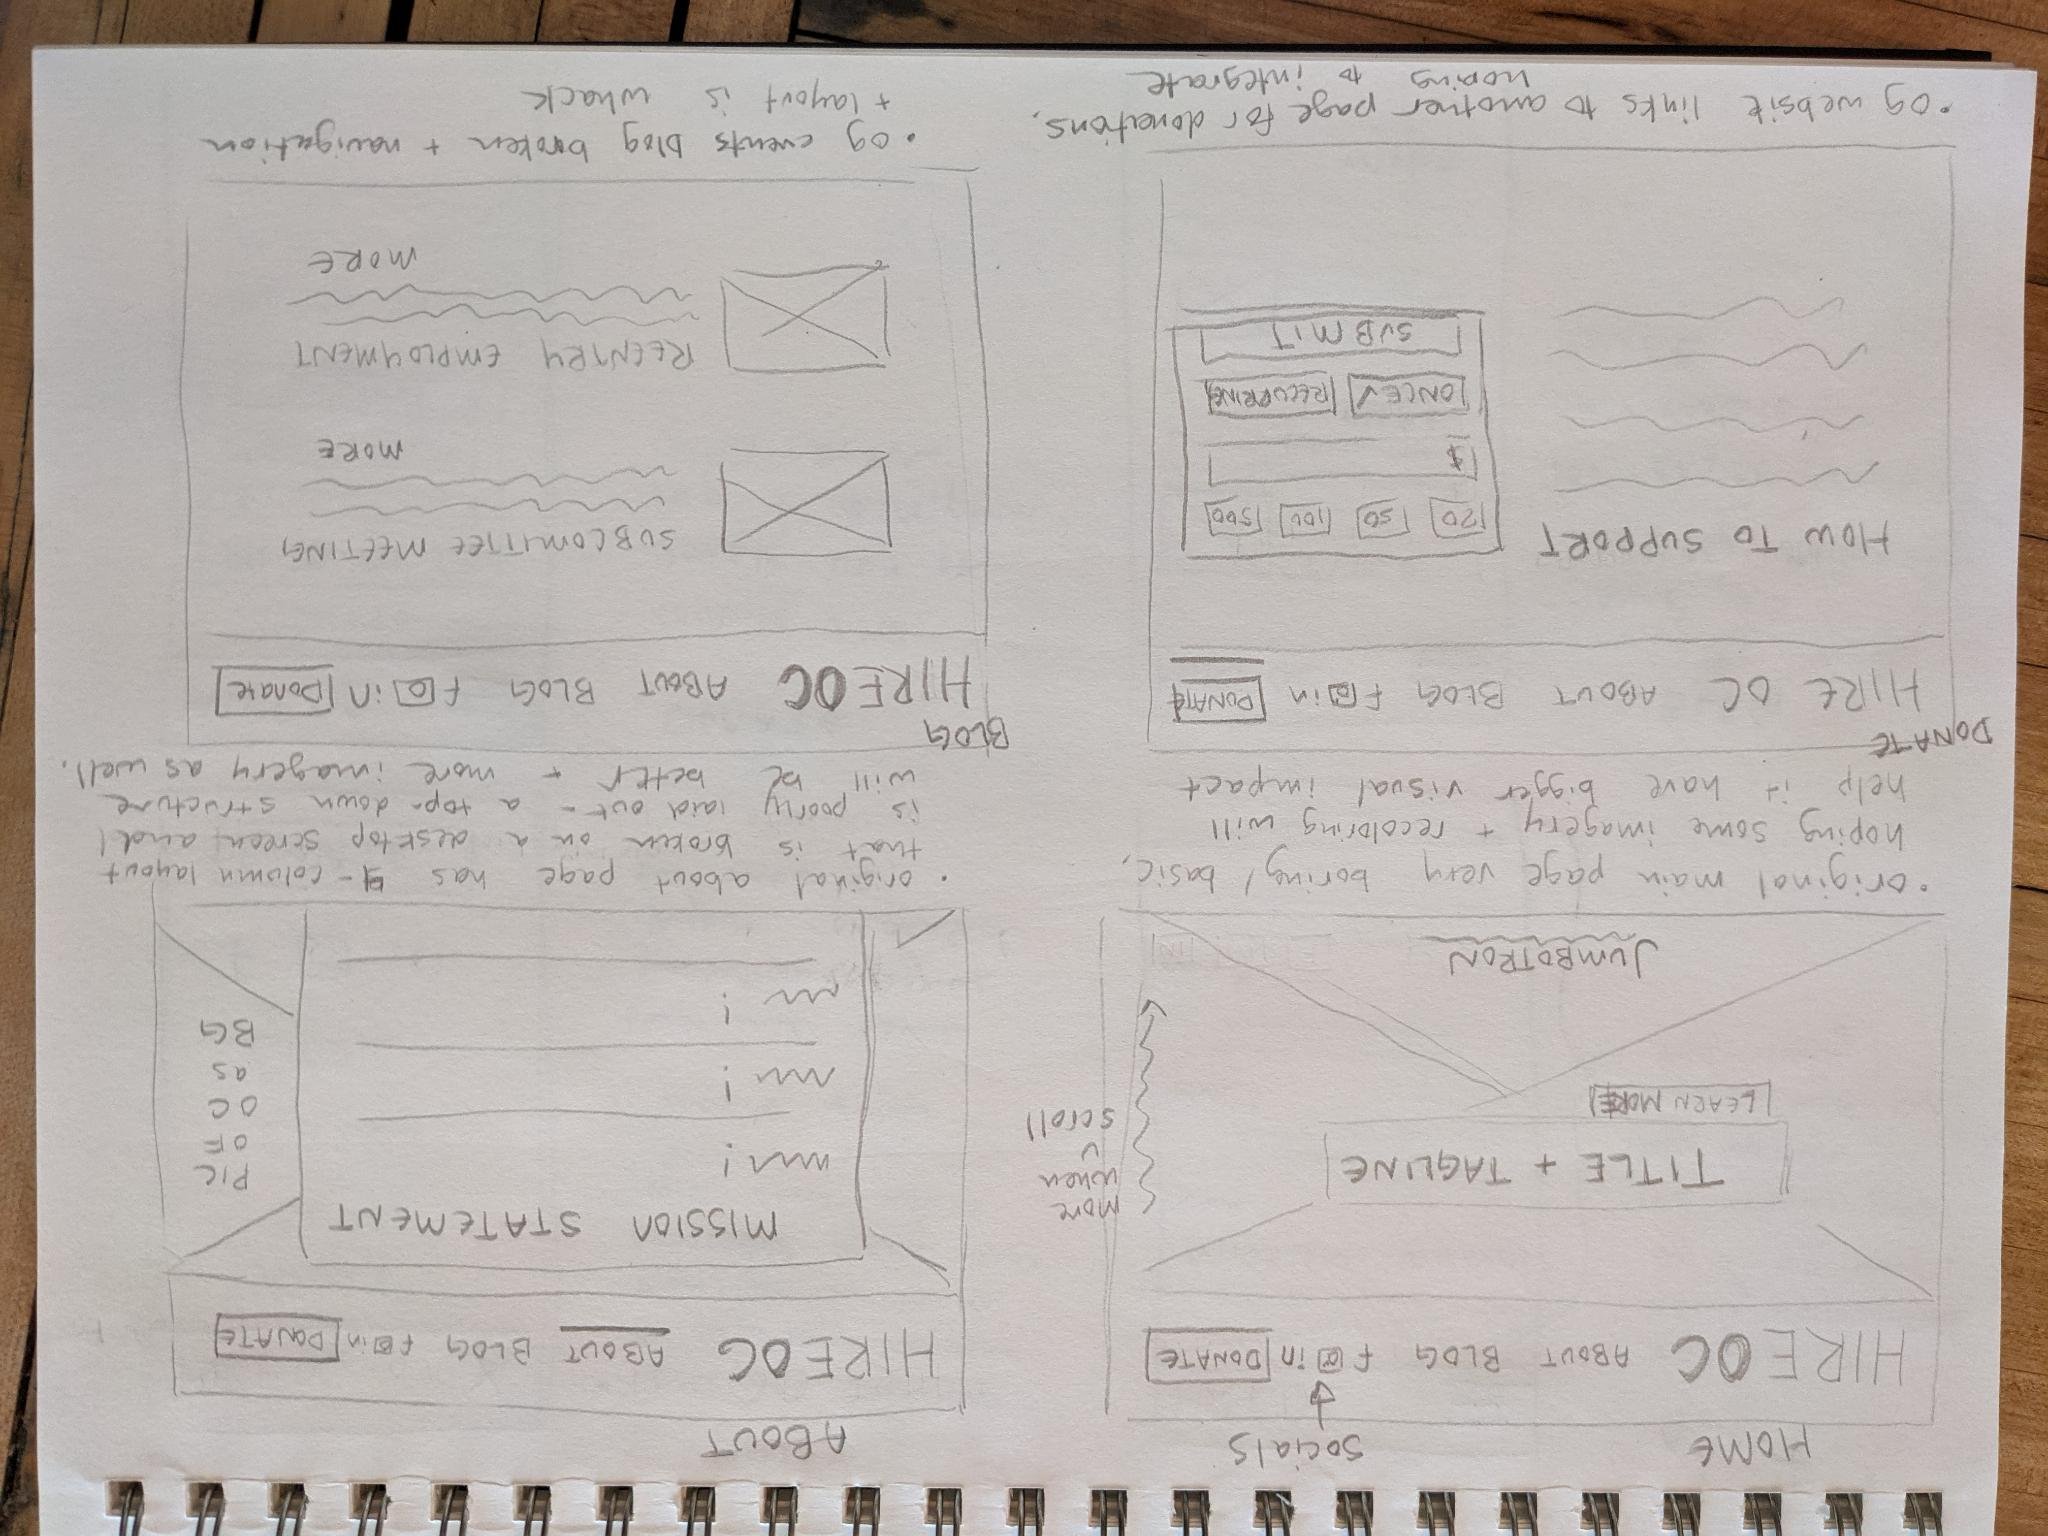 HOME
socials
HIREOC ABOUT BLOG f in DONATE
TITLE + TAGLINE
LEARN MORE
more
when
u
scroll
JUMBOTRON
• original main page very boring/basic,
hoping some imagery + recoloring will
help it have bigger visual impact
ABOUT
HIREOC ABOUT BLOG f in DONATE
MISSION STATEMENT
!
!
!
PIC
OF
OC
as
BG
• original about page has 4-column layout
that is broken on a desktop screen and
is poorly laid out - a top-down structure
will be better + more imagery as well.
DONATE
HIRE OC ABOUT BLOG f in DONATE
HOW TO SUPPORT
20 50 100 500
$
ONCE ✓ RECURRING
SUBMIT
• og website links to another page for donations,
hoping to integrate
BLOG
HIREOC ABOUT BLOG f in Donate
SUBCOMITTEE MEETING
MORE
REENTRY EMPLOYMENT
MORE
• og events blog broken + navigation
+ layout is whack